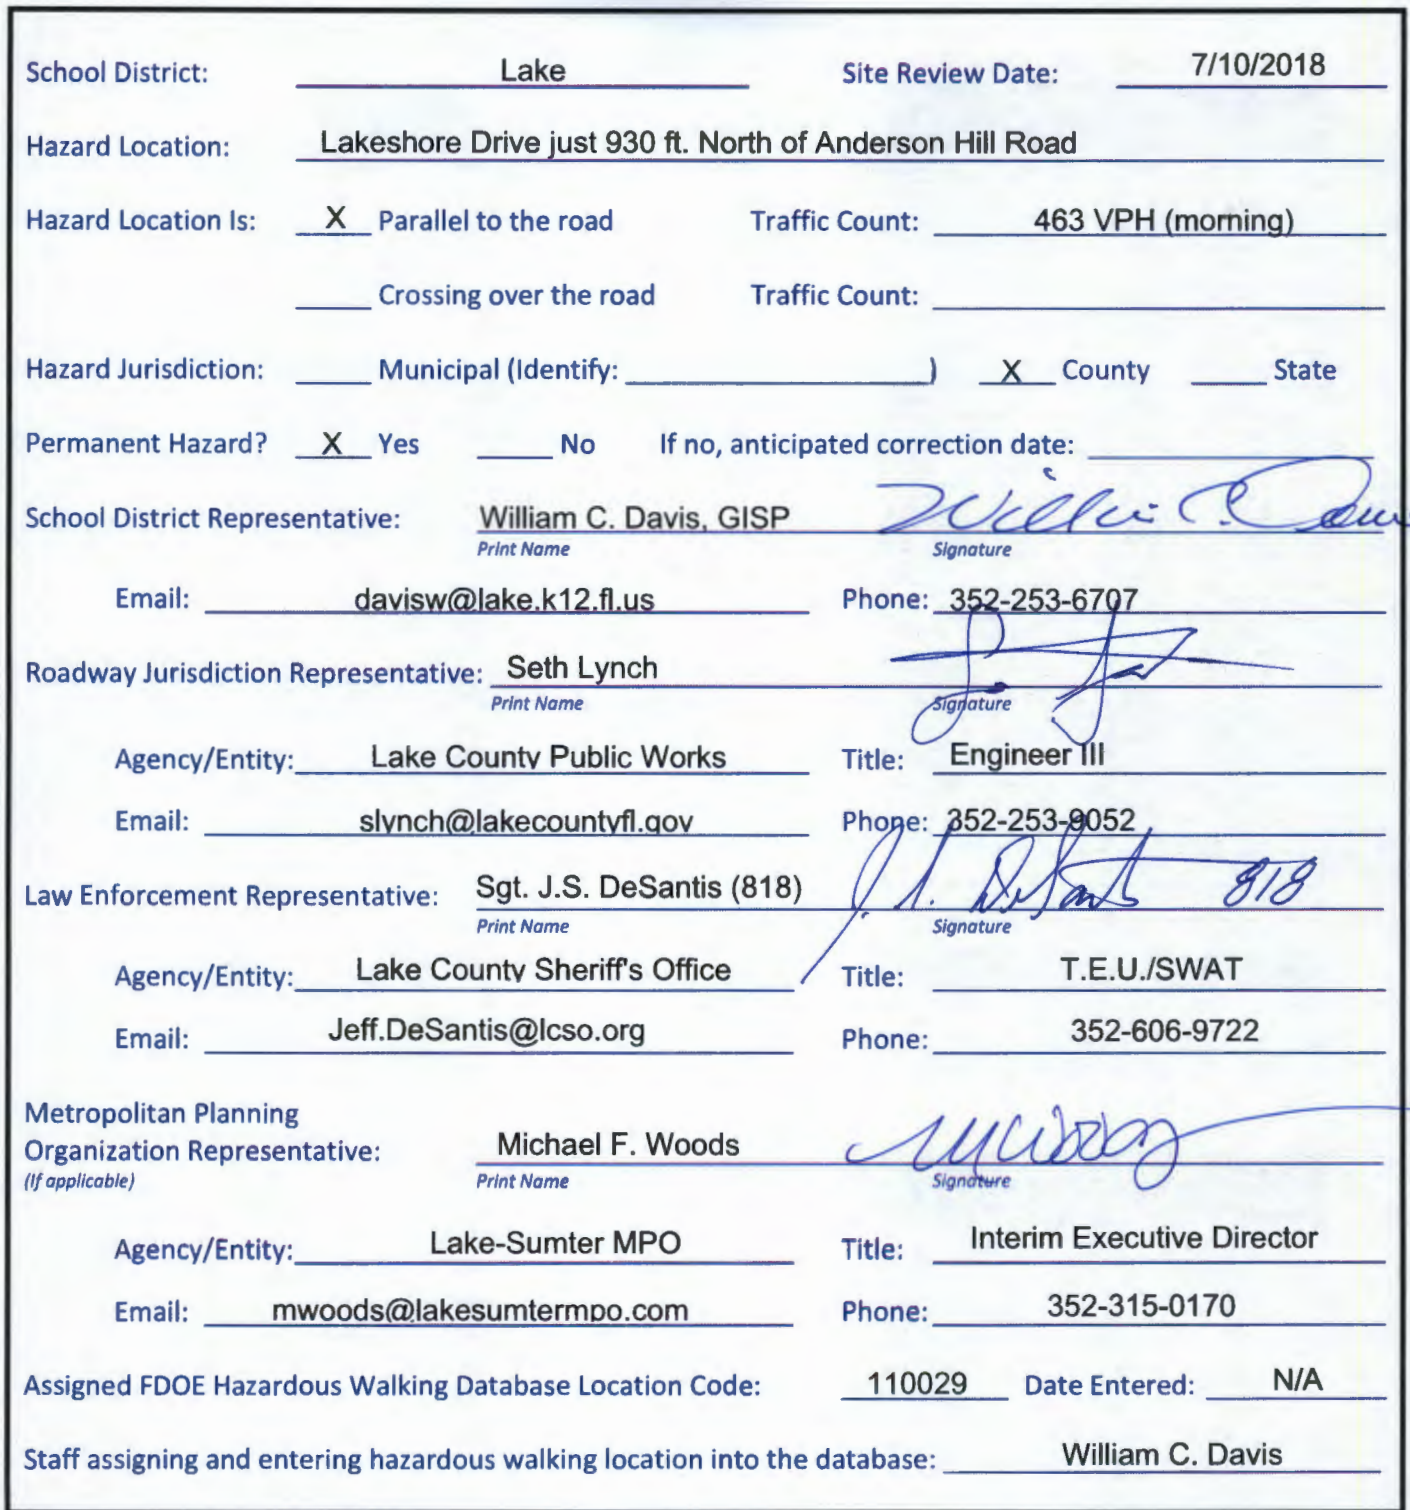 School District: Lake Site Review Date: 7/10/2018
Hazard Location: Lakeshore Drive just 930 ft. North of Anderson Hill Road
Hazard Location Is: X Parallel to the road Traffic Count: 463 VPH (morning)
Crossing over the road Traffic Count:
Hazard Jurisdiction: Municipal (Identify: ) X County State
Permanent Hazard? X Yes No If no, anticipated correction date:
School District Representative: William C. Davis, GISP Willia C. Davis
Print Name Signature
Email: davisw@lake.k12.fl.us Phone: 352-253-6707
Roadway Jurisdiction Representative: Seth Lynch
Print Name Signature
Agency/Entity: Lake County Public Works Title: Engineer III
Email: slynch@lakecountyfl.gov Phone: 352-253-9052
Law Enforcement Representative: Sgt. J.S. DeSantis (818) J. S. DeSantis 818
Print Name Signature
Agency/Entity: Lake County Sheriff's Office Title: T.E.U./SWAT
Email: Jeff.DeSantis@lcso.org Phone: 352-606-9722
Metropolitan Planning
Organization Representative: Michael F. Woods MWoods
(If applicable) Print Name Signature
Agency/Entity: Lake-Sumter MPO Title: Interim Executive Director
Email: mwoods@lakesumtermpo.com Phone: 352-315-0170
Assigned FDOE Hazardous Walking Database Location Code: 110029 Date Entered: N/A
Staff assigning and entering hazardous walking location into the database: William C. Davis